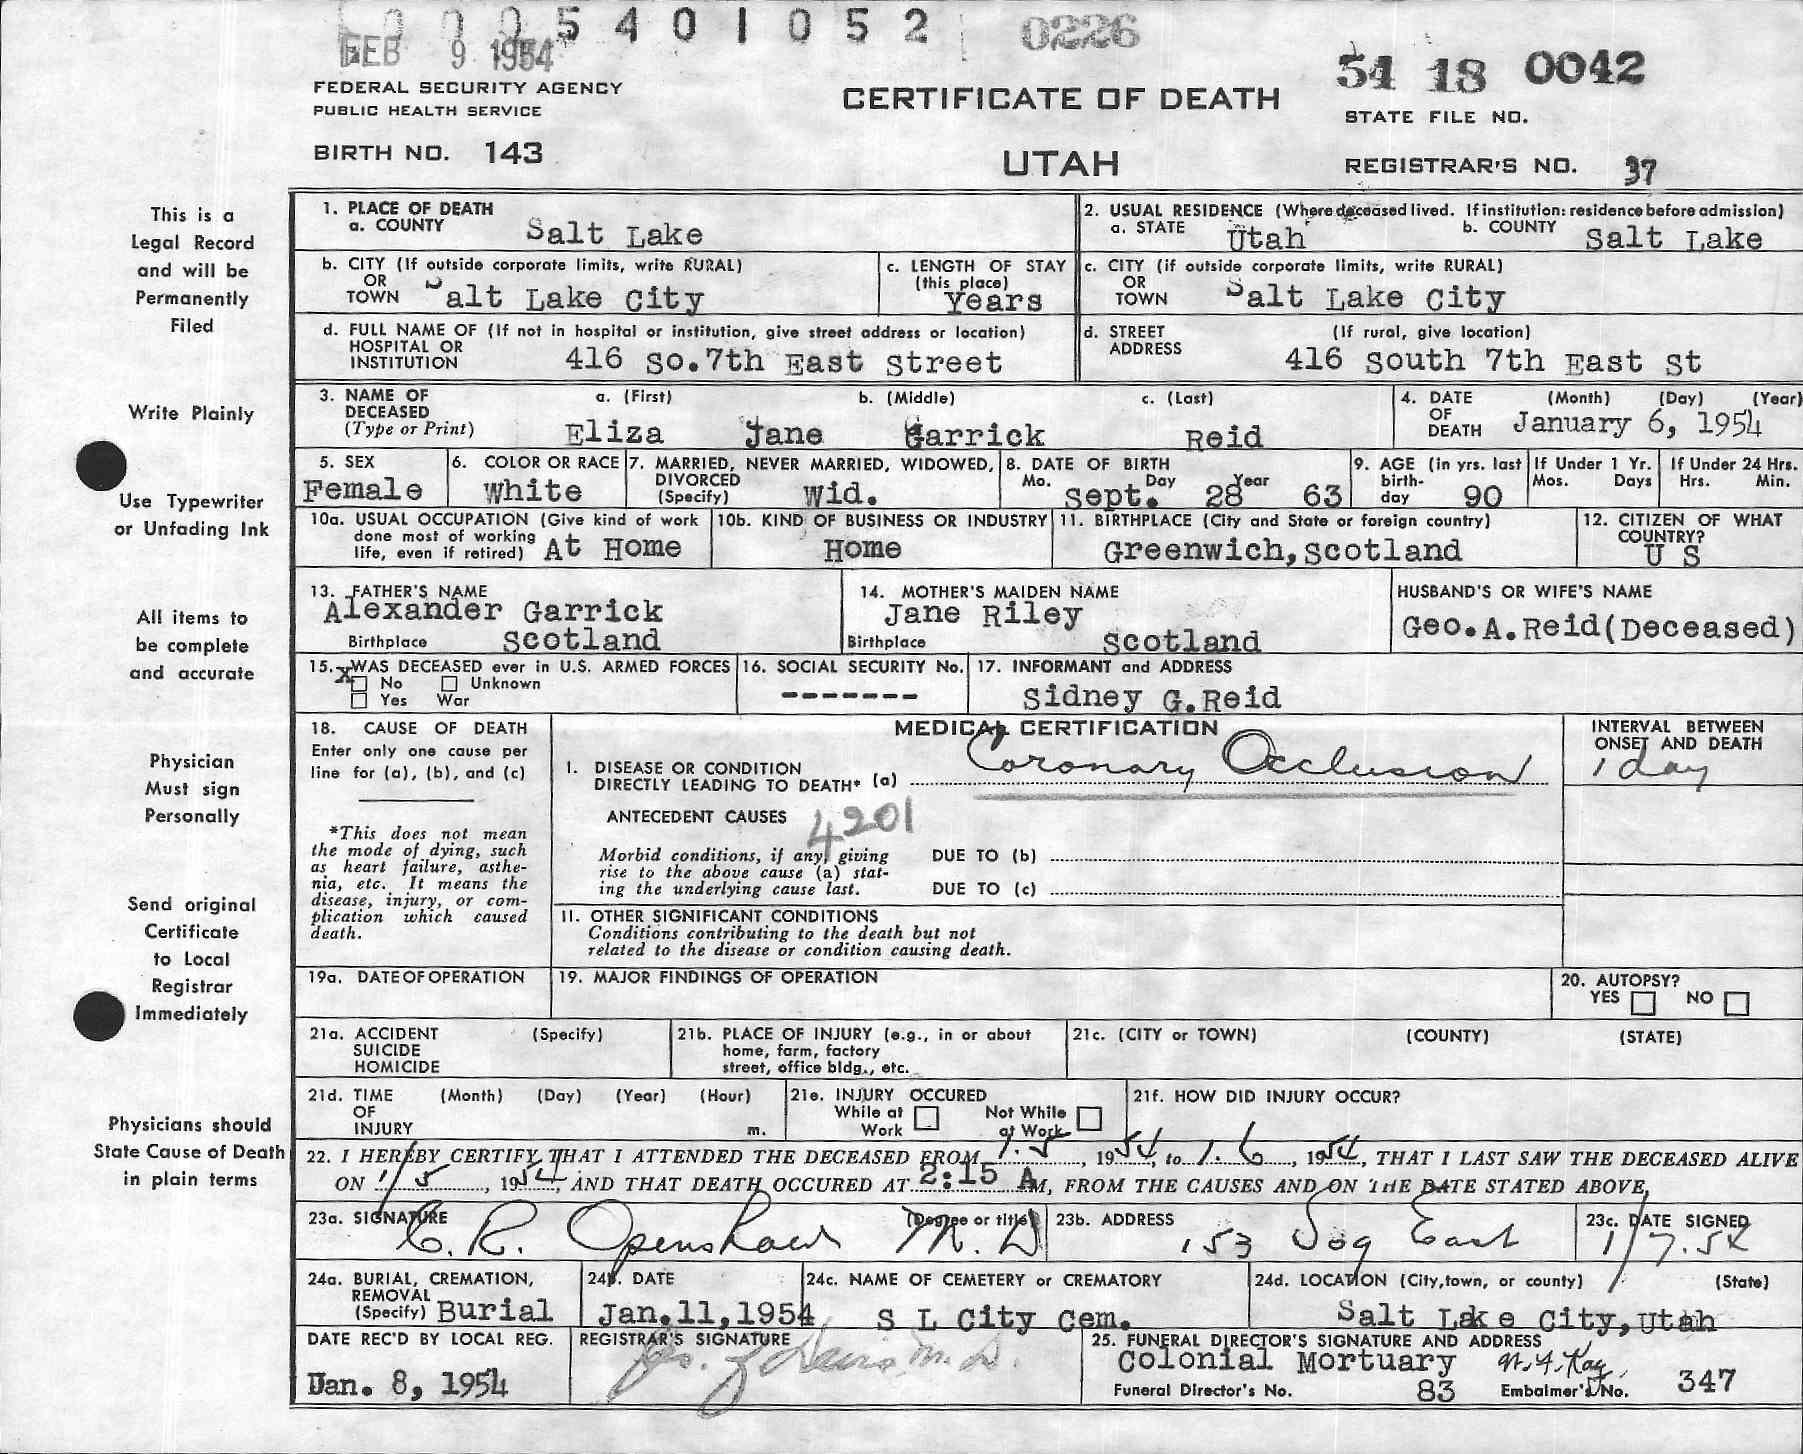 0005401052 0226
FEB 9 1954
54 18 0042
FEDERAL SECURITY AGENCY
PUBLIC HEALTH SERVICE
CERTIFICATE OF DEATH
STATE FILE NO.
BIRTH NO. 143
UTAH
REGISTRAR'S NO. 37
This is a
Legal Record
and will be
Permanently
Filed
Write Plainly
Use Typewriter
or Unfading Ink
All items to
be complete
and accurate
Physician
Must sign
Personally
Send original
Certificate
to Local
Registrar
Immediately
Physicians should
State Cause of Death
in plain terms
1. PLACE OF DEATH
a. COUNTY Salt Lake
2. USUAL RESIDENCE (Where deceased lived. If institution: residence before admission)
a. STATE Utah b. COUNTY Salt Lake
b. CITY (If outside corporate limits, write RURAL)
OR
TOWN Salt Lake City
c. LENGTH OF STAY
(this place)
Years
c. CITY (if outside corporate limits, write RURAL)
OR
TOWN Salt Lake City
d. FULL NAME OF (If not in hospital or institution, give street address or location)
HOSPITAL OR
INSTITUTION 416 So.7th East Street
d. STREET (If rural, give location)
ADDRESS 416 South 7th East St
3. NAME OF a. (First) b. (Middle) c. (Last)
DECEASED
(Type or Print) Eliza Jane Garrick Reid
4. DATE (Month) (Day) (Year)
OF
DEATH January 6, 1954
5. SEX
Female
6. COLOR OR RACE
White
7. MARRIED, NEVER MARRIED, WIDOWED,
DIVORCED
(Specify) Wid.
8. DATE OF BIRTH
Mo. Day Year
Sept. 28 63
9. AGE (in yrs. last
birth-
day 90
If Under 1 Yr.
Mos. Days
If Under 24 Hrs.
Hrs. Min.
10a. USUAL OCCUPATION (Give kind of work
done most of working
life, even if retired) At Home
10b. KIND OF BUSINESS OR INDUSTRY
Home
11. BIRTHPLACE (City and State or foreign country)
Greenwich,Scotland
12. CITIZEN OF WHAT
COUNTRY?
U S
13. FATHER'S NAME
Alexander Garrick
Birthplace Scotland
14. MOTHER'S MAIDEN NAME
Jane Riley
Birthplace Scotland
HUSBAND'S OR WIFE'S NAME
Geo.A.Reid(Deceased)
15. WAS DECEASED ever in U.S. ARMED FORCES
X No Unknown
Yes War
16. SOCIAL SECURITY No.
-------
17. INFORMANT and ADDRESS
Sidney G.Reid
18. CAUSE OF DEATH
Enter only one cause per
line for (a), (b), and (c)
*This does not mean
the mode of dying, such
as heart failure, asthe-
nia, etc. It means the
disease, injury, or com-
plication which caused
death.
MEDICAL CERTIFICATION
I. DISEASE OR CONDITION
DIRECTLY LEADING TO DEATH* (a) Coronary Occlusion
ANTECEDENT CAUSES 4201
Morbid conditions, if any, giving
rise to the above cause (a) stat-
ing the underlying cause last.
DUE TO (b)
DUE TO (c)
INTERVAL BETWEEN
ONSET AND DEATH
1 day
II. OTHER SIGNIFICANT CONDITIONS
Conditions contributing to the death but not
related to the disease or condition causing death.
19a. DATE OF OPERATION
19. MAJOR FINDINGS OF OPERATION
20. AUTOPSY?
YES NO
21a. ACCIDENT (Specify)
SUICIDE
HOMICIDE
21b. PLACE OF INJURY (e.g., in or about
home, farm, factory
street, office bldg., etc.
21c. (CITY or TOWN) (COUNTY) (STATE)
21d. TIME (Month) (Day) (Year) (Hour)
OF
INJURY m.
21e. INJURY OCCURED
While at Not While
Work at Work
21f. HOW DID INJURY OCCUR?
22. I HEREBY CERTIFY THAT I ATTENDED THE DECEASED FROM 1.5, 1954, to 1.6, 1954, THAT I LAST SAW THE DECEASED ALIVE
ON 1/5, 1954, AND THAT DEATH OCCURED AT 2:15 A M, FROM THE CAUSES AND ON THE DATE STATED ABOVE,
23a. SIGNATURE (Degree or title)
C. R. Openshaw M.D
23b. ADDRESS
153 Sog East
23c. DATE SIGNED
1/7.54
24a. BURIAL, CREMATION,
REMOVAL
(Specify) Burial
24b. DATE
Jan.11,1954
24c. NAME OF CEMETERY or CREMATORY
S L City Cem.
24d. LOCATION (City,town, or county) (State)
Salt Lake City,Utah
DATE REC'D BY LOCAL REG.
Jan. 8, 1954
REGISTRAR'S SIGNATURE
M.D.
25. FUNERAL DIRECTOR'S SIGNATURE AND ADDRESS
Colonial Mortuary
Funeral Director's No. 83 Embalmer's No. 347